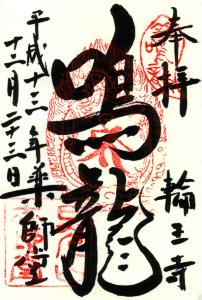 奉拝
輪王寺
鳴龍
薬師堂
平成十三年
十二月二十三日